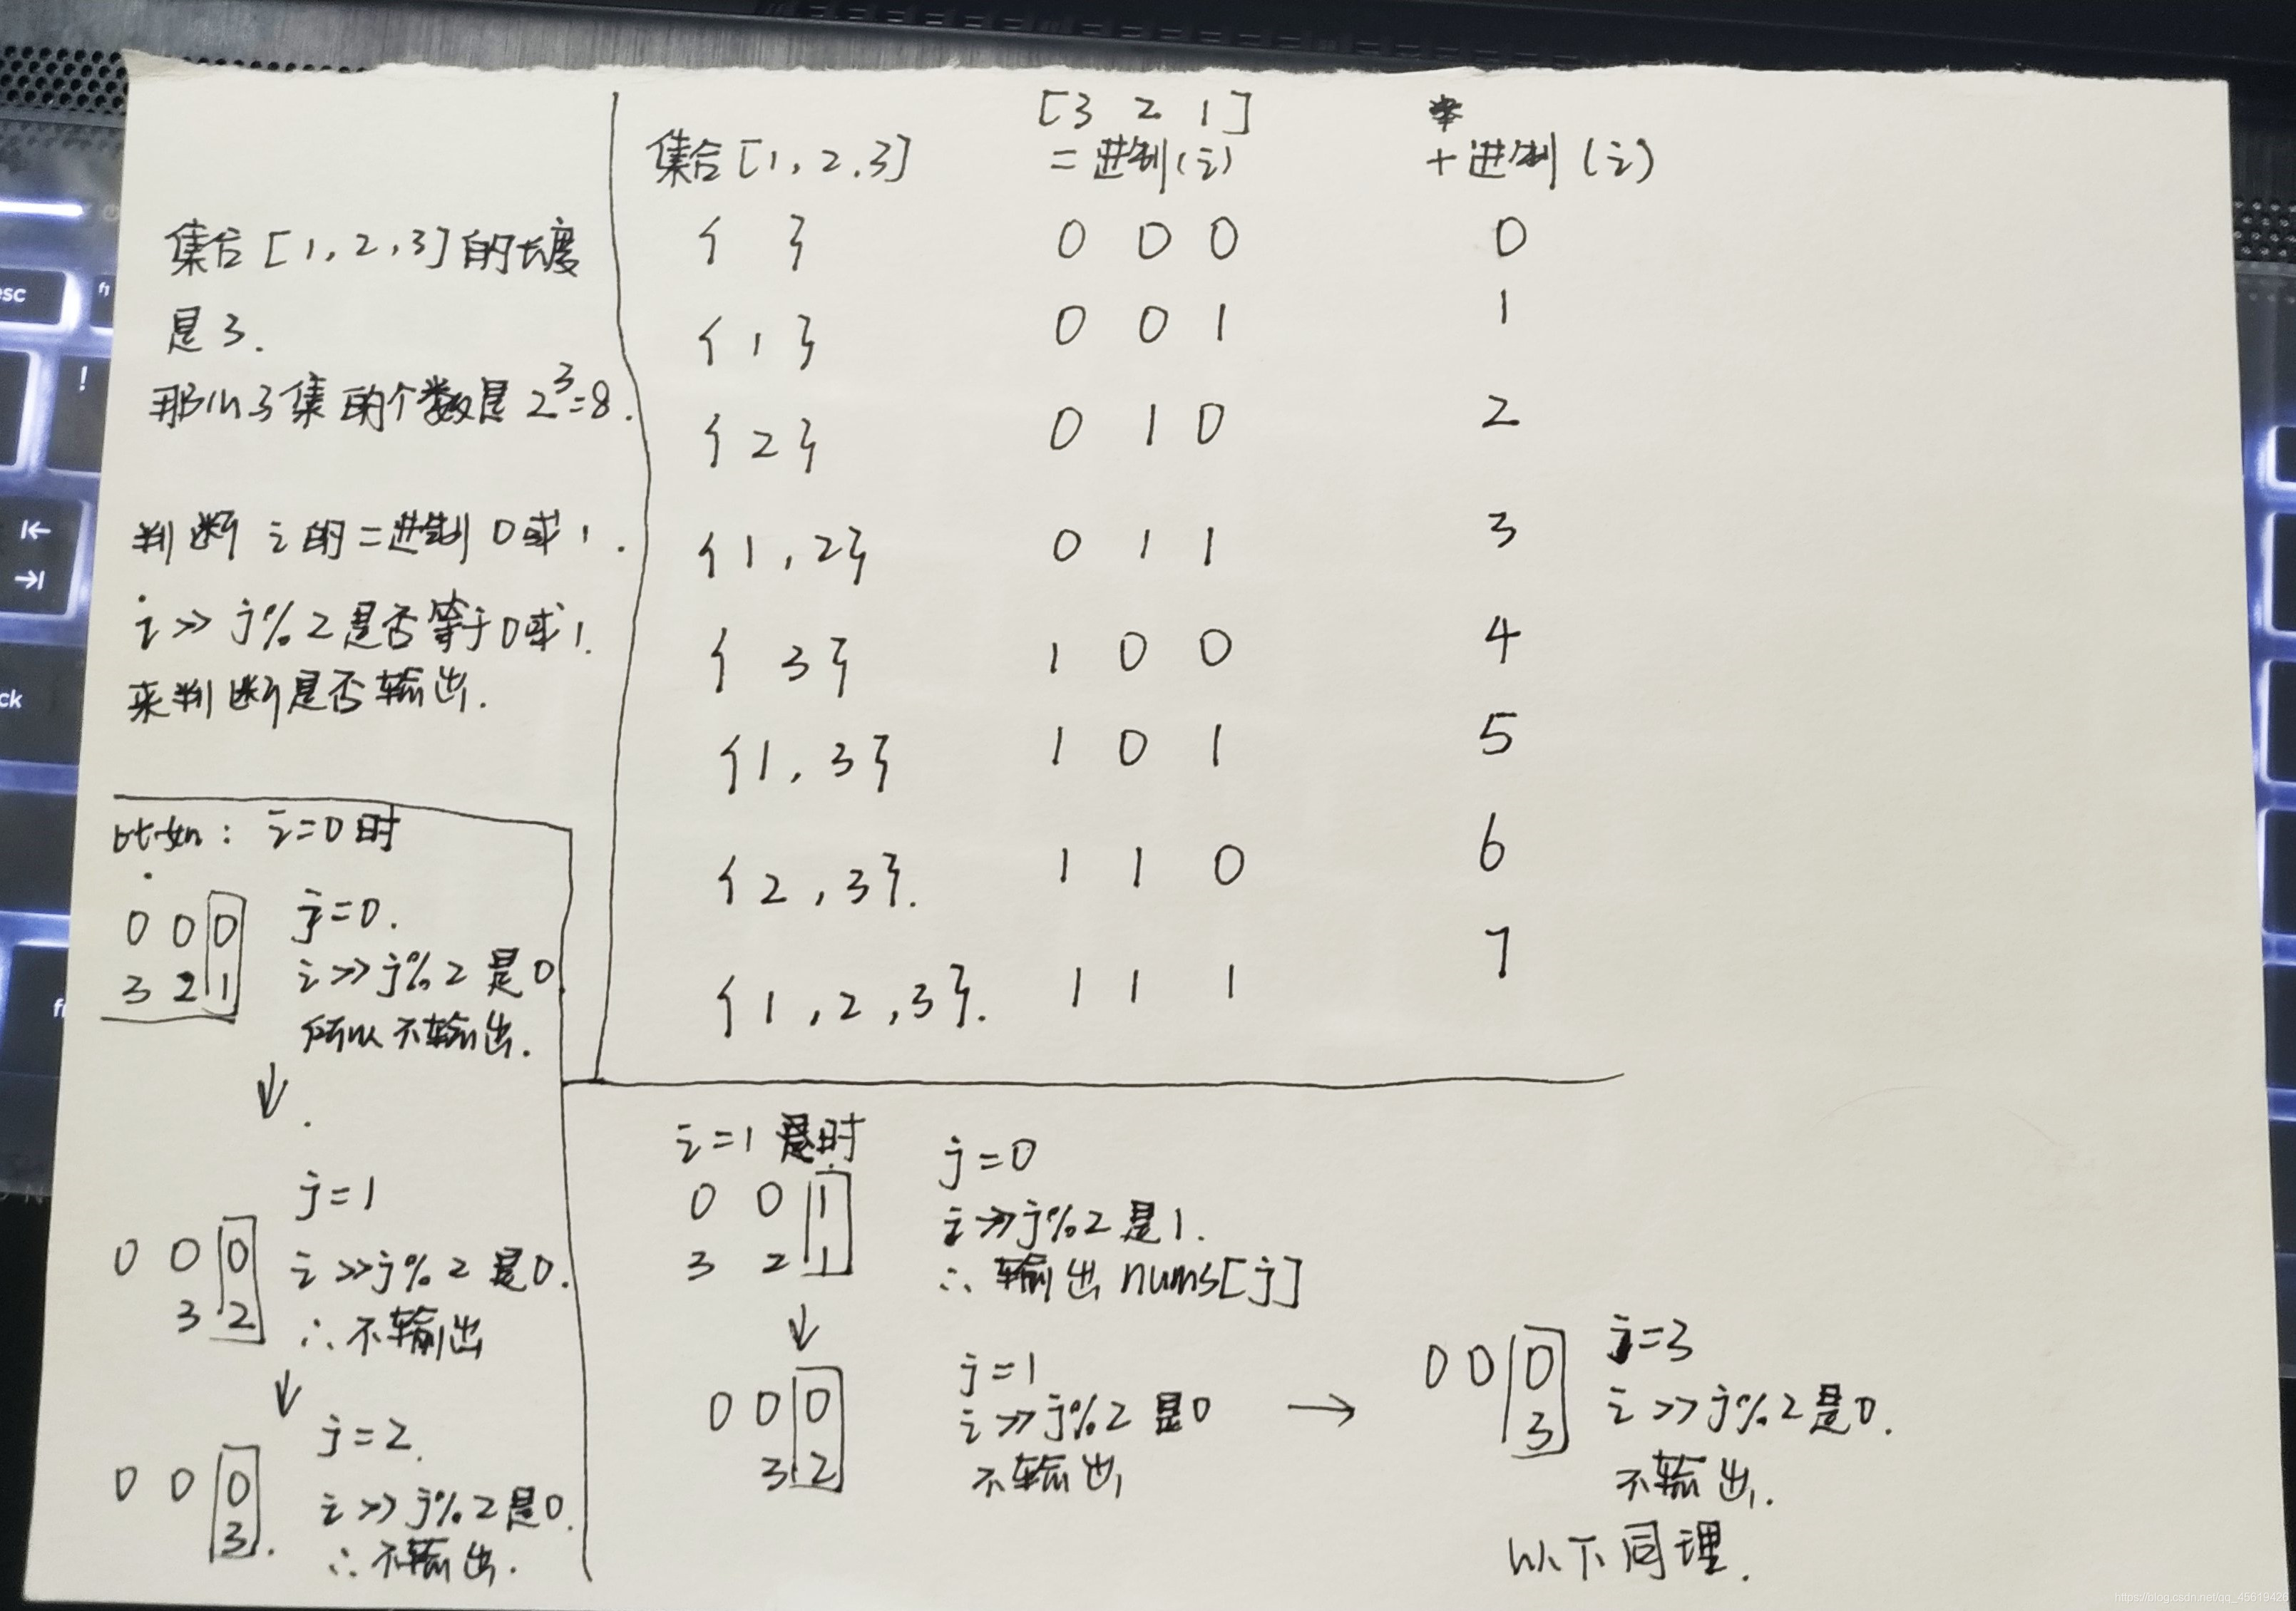 集合[1,2,3]的长度
是3.
那以子集的个数是2³=8.
判断i的二进制0或1.
i>>j%2是否等于0或1.
来判断是否输出.
[3 2 1]
集合[1,2.3] 二进制(i) 十进制(i)
{ } 0 0 0 0
{1} 0 0 1 1
{2} 0 1 0 2
{1,2} 0 1 1 3
{ 3} 1 0 0 4
{1,3} 1 0 1 5
{2,3}. 1 1 0 6
{1,2,3}. 1 1 1 7
比如: i=0时
0 0 0 j=0.
3 2 1 i>>j%2是0
所以不输出.
↓
j=1
0 0 0 i>>j%2是0.
3 2 ∴不输出
↓
j=2.
0 0 0 i>>j%2是0.
3. ∴不输出.
i=1时
j=0
0 0 1 i>>j%2是1.
3 2 1 ∴输出nums[j]
↓
j=1
0 0 0 i>>j%2是0
3 2 不输出
→
0 0 0 j=3
3 i>>j%2是0.
不输出.
以下同理.
esc
f1
!
https://blog.csdn.net/qq_45619426